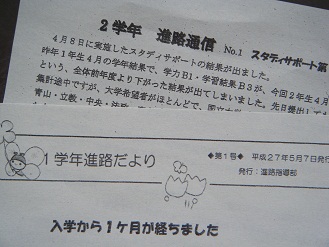 2学年 進路通信 No.1 スタディサポート第
4月8日に実施したスタディサポートの結果が出ました。
昨年1年生4月の学年結果で、学力B1・学習結果B3が、今回2年生4月
という、全体前年度より下がった結果が出てしまいました。
集計途中ですが、大学希望者がほとんどで、国立大
青山・立教・中央・法政
1学年進路だより
◆第1号◆ 平成27年5月7日発行
発行:進路指導部
入学から1ケ月が経ちました